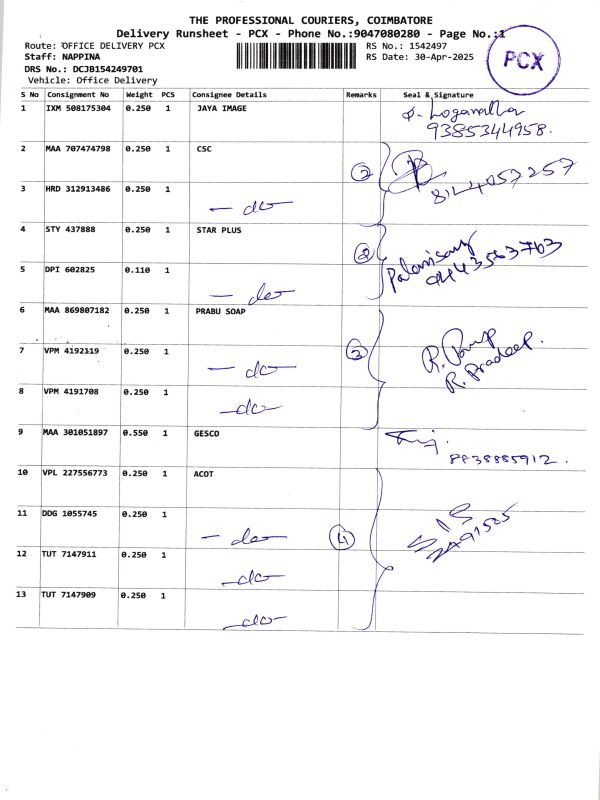 THE PROFESSIONAL COURIERS, COIMBATORE
Delivery Runsheet - PCX - Phone No.:9047080280 - Page No.:1
Route: OFFICE DELIVERY PCX
RS No.: 1542497
Staff: NAPPINA
RS Date: 30-Apr-2025
DRS No.: DCJB154249701
Vehicle: Office Delivery
PCX
S No Consignment No Weight PCS Consignee Details Remarks Seal & Signature
1 IXM 508175304 0.250 1 JAYA IMAGE
9385344958.
2 MAA 707474798 0.250 1 CSC
2 8144057257
3 HRD 312913486 0.250 1
- do -
4 STY 437888 0.250 1 STAR PLUS
2 Palanisamy
9443563763
5 DPI 602825 0.110 1
- do -
6 MAA 869807182 0.250 1 PRABU SOAP
7 VPM 4192119 0.250 1
- do -
3 R. Pradeep.
8 VPM 4191708 0.250 1
- do -
9 MAA 301051897 0.550 1 GESCO
8838885912.
10 VPL 227556773 0.250 1 ACOT
11 DDG 1055745 0.250 1
- do -
4
12 TUT 7147911 0.250 1
- do -
13 TUT 7147909 0.250 1
- do -